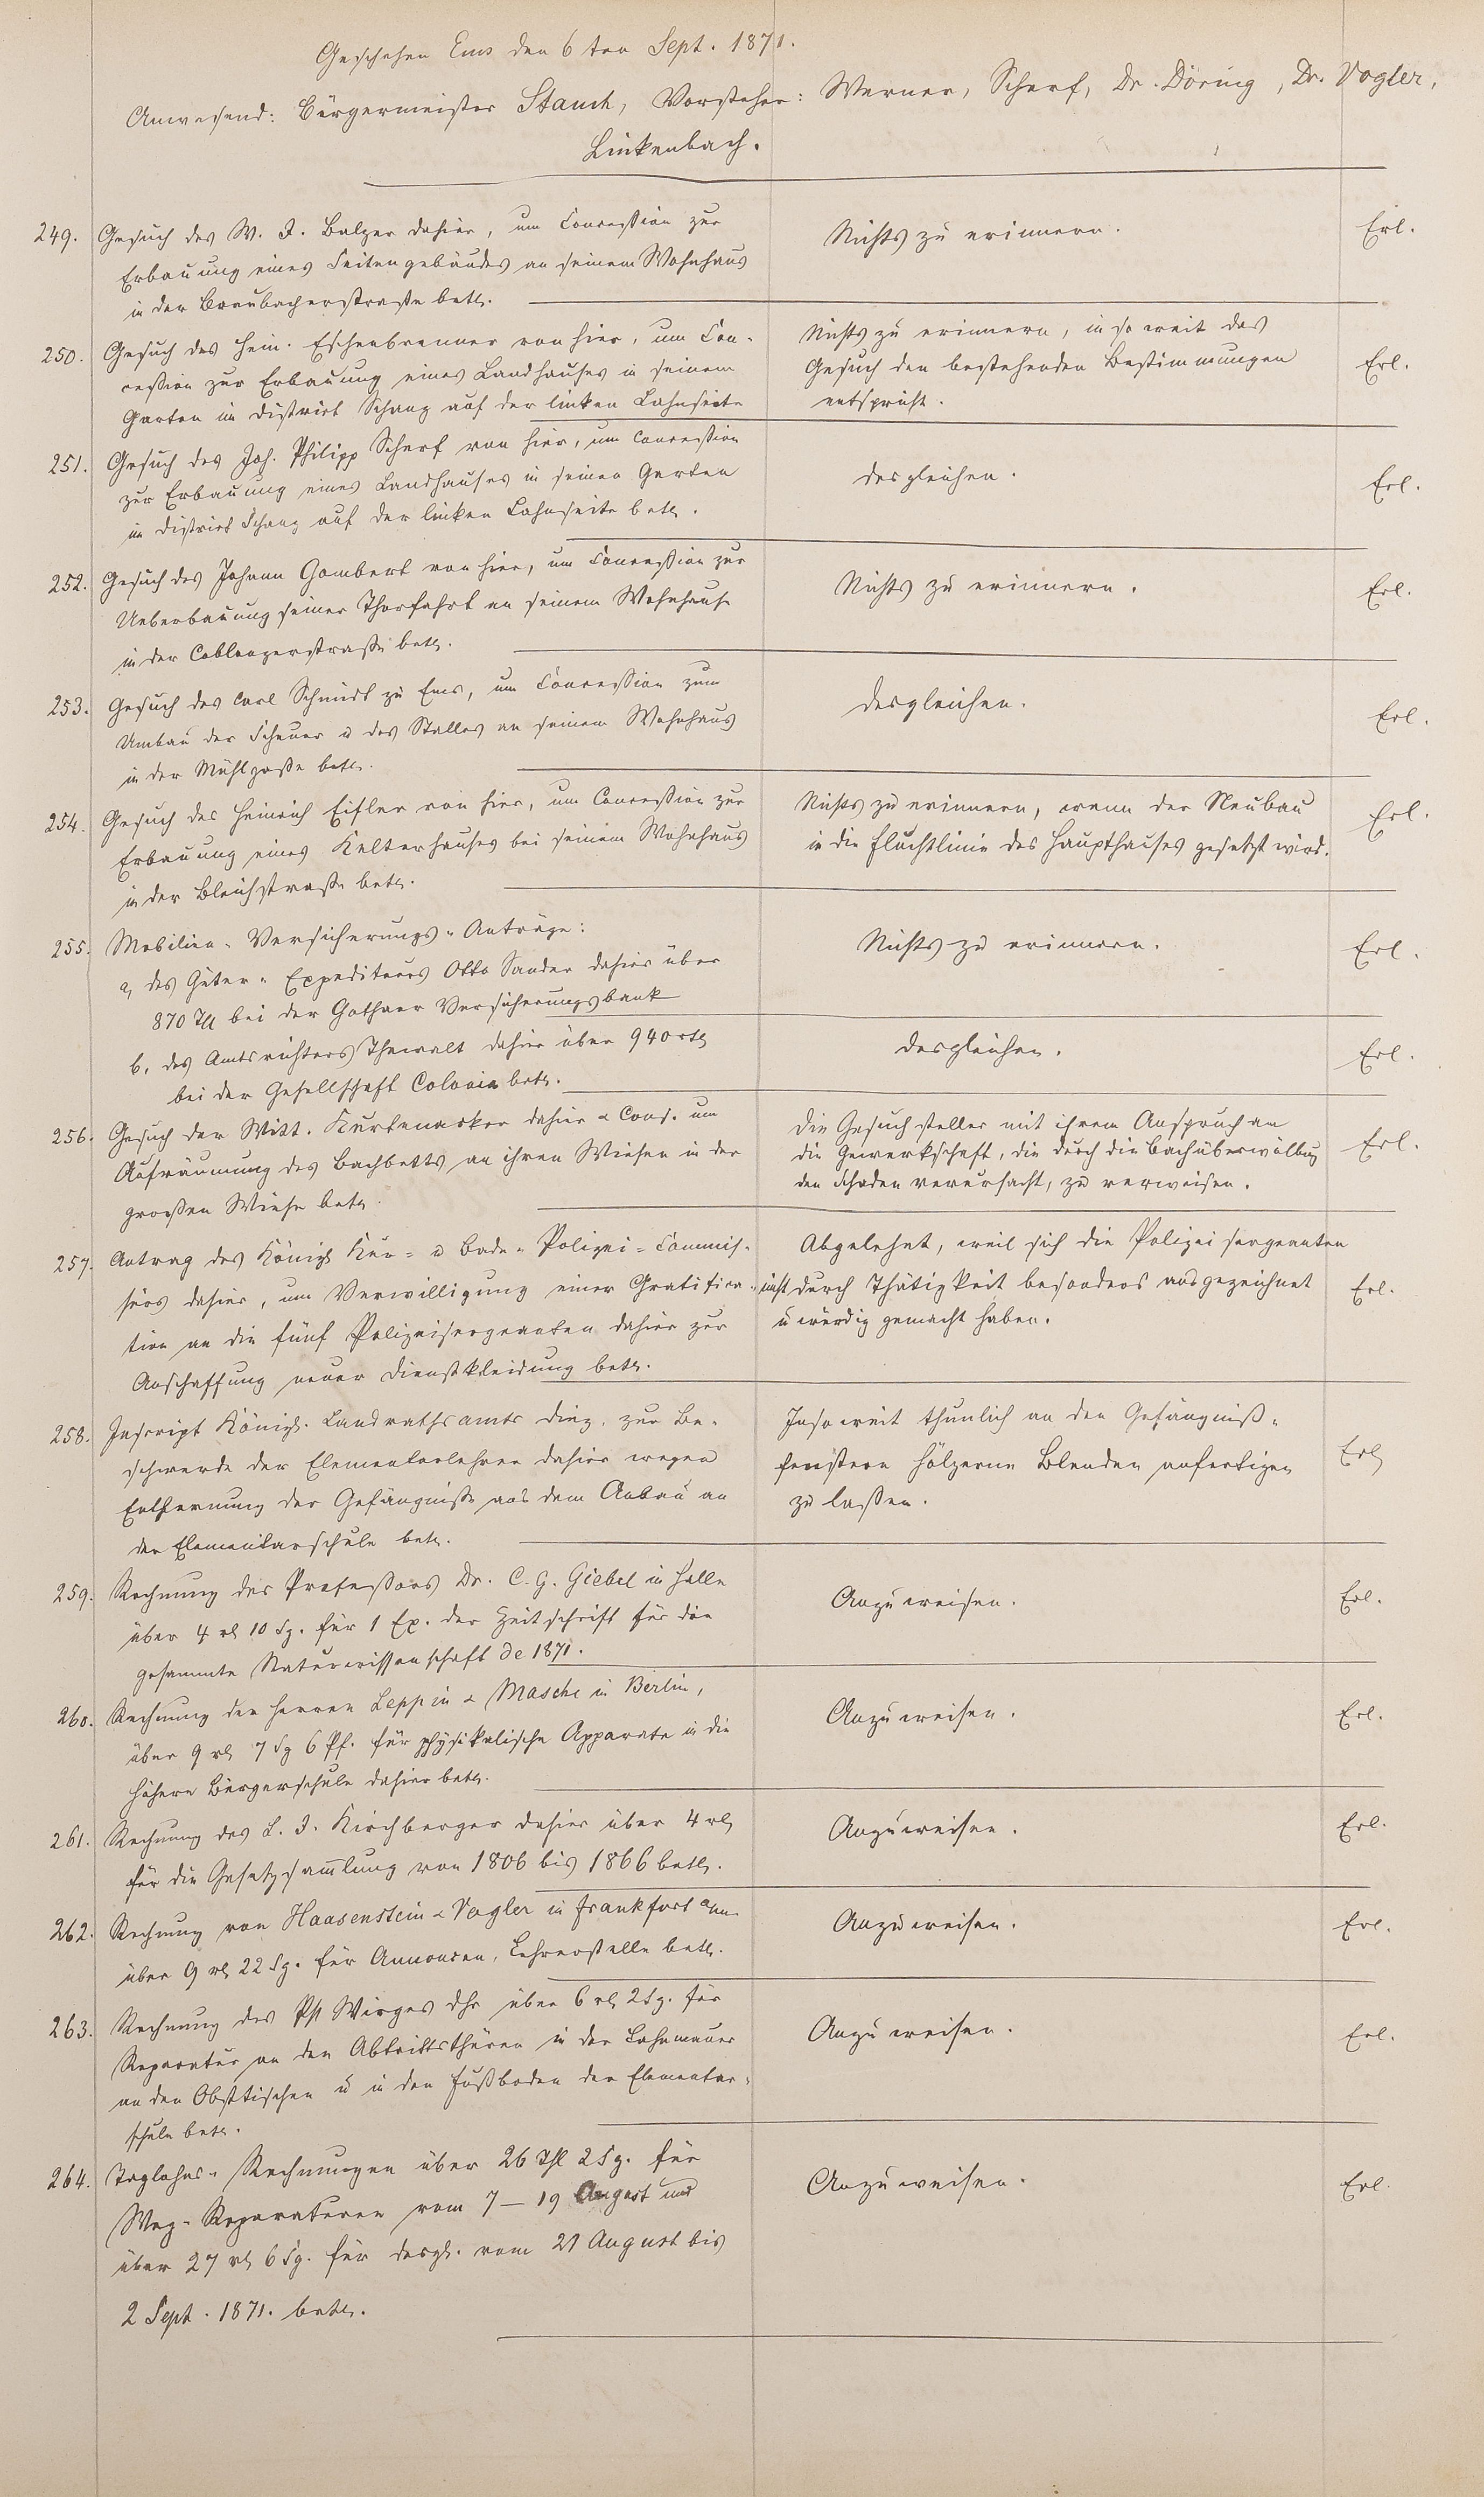 Geschehen Ems den 6ten Sept. 1871.
Anwesend: Bürgermeister Stauch, Vorsteher: Werner, Scherf, Dr. Döring, Dr. Vogler,
Linkenbach.
249. Gesuch des W. J. Balzer dahier, um Concession zur
Erbauung eines Seitengebäudes an seinem Wohnhaus
in der Braubacherstraße betr.
Nichts zu erinnern.
Erl.
250. Gesuch des Hein. Eschenbrenner von hier, um Con-
cession zur Erbauung eines Landhauses in seinem
Garten im District Schanz auf der linken Lahnseite
Nichts zu erinnern, in so weit das
Gesuch den bestehenden Bestimmungen
entspricht.
Erl.
251. Gesuch des Joh. Philipp Scherf von hier, um Concession
zur Erbauung eines Landhauses in seinen Garten
im District Schanz auf der linken Lahnseite betr.
desgleichen.
Erl.
252. Gesuch des Johann Gombert von hier, um Concession zur
Ueberbauung seiner Thorfahrt an seinem Wohnhause
in der Coblenzerstraße betr.
Nichts zu erinnern.
Erl.
253. Gesuch des Carl Schmidt zu Ems, um Concession zum
Umbau der Scheuer u des Stalles an seinem Wohnhaus
in der Mühlgasse betr.
desgleichen.
Erl.
254. Gesuch des Heinrich Eisler von hier, um Concession zur
Erbauung eines Kelterhauses bei seinem Wohnhaus
in der Bleichstraße betr.
Nichts zu erinnern, wenn der Neubau
in die Fluchtlinie des Haupthauses gesetzt wird.
Erl.
255. Mobilien-Versicherungs-Anträge:
a, des Güter-Expediteurs Otto Sander dahier über
870 Thl bei der Gothaer Versicherungsbank
Nichts zu erinnern.
Erl.
b, des Amtsrichters Thewalt dahier über 940 rtl
bei der Gesellschaft Colonia betr.
desgleichen.
Erl.
256. Gesuch der Witt. Kurtenacker dahier & Cons. um
Aufräumung des Bachbetts an ihren Wiesen in der
großen Wiese betr.
Die Gesuchsteller mit ihrem Anspruch an
die Gewerkschaft, die durch die Bachüberwölbung
den Schaden verursacht, zu verweisen.
Erl.
257. Antrag des Königl Kur- u Bade-Polizei-Commis-
särs dahier, um Verwilligung einer Gratifica-
tion an die fünf Polizeisergeanten dahier zur
Anschaffung neuer Dienstkleidung betr.
Abgelehnt, weil sich die Polizeisergeanten
nicht durch Thätigkeit besonders ausgezeichnet
u würdig gemacht haben.
Erl.
258. Inscript Königl. Landrathsamts Diez, zur Be-
schwerde der Elementarlehrer dahier wegen
Entfernung der Gefängnisse aus dem Anbau an
der Elementarschule betr.
Insoweit thunlich an den Gefängniß-
fenstern hölzerne Blenden anfertigen
zu lassen.
Erl
259. Rechnung des Professors Dr. C. G. Giebel in Halle
über 4 rl 10 Sg. für 1 Ex. der Zeitschrift für die
gesammte Naturwissenschaft de 1871.
Anzuweisen.
Erl.
260. Rechnung der Herren Leppin & Masche in Berlin,
über 9 rl 7 Sg 6 Pf. für physikalische Apparate in die
höhere Bürgerschule dahier betr.
Anzuweisen.
Erl.
261. Rechnung des L. J. Kirchberger dahier über 4 rl
für die Gesetzsammlung von 1806 bis 1866 betr.
Anzuweisen.
Erl.
262. Rechnung von Haasenstein & Vogler in Frankfort a/m.
über 9 rl 22 Sg. für Annoncen, Lehrerstelle betr.
Anzuweisen.
Erl.
263. Rechnung des Ph Wirges dhr über 6 rl 2 Sg. für
Reparatur an den Abtrittsthüren in der Lahnmauer
an den Obsttischen u in den Fußboden der Elementar-
schule betr.
Anzuweisen.
Erl.
264. Taglohns-Rechnungen über 26 Thl 2 Sg. für
Weg-Reparaturen vom 7 – 19 August und
über 27 rl 6 Sg. für desgl. vom 21 August bis
2 Sept. 1871. betr.
Anzuweisen.
Erl.